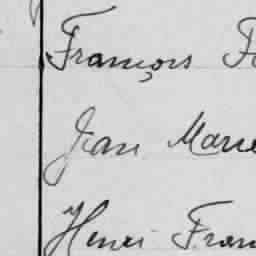 François
Jean Marie
Henri Fran